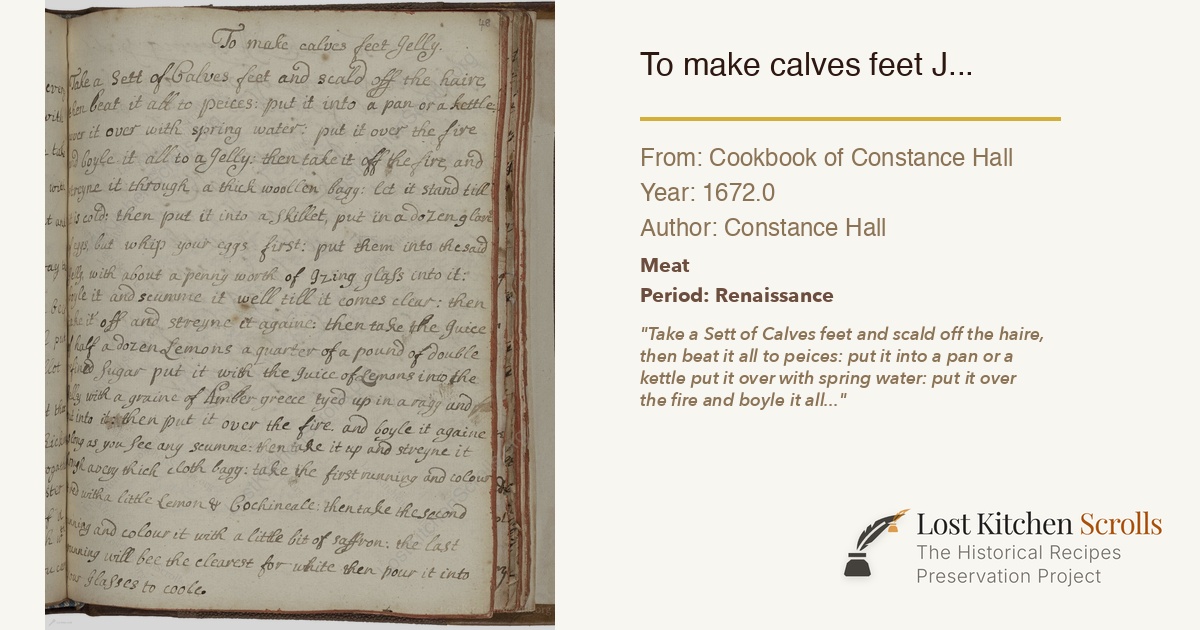 48
To make calves feet Jelly.
Take a Sett of Calves feet and scald off the haire,
then beat it all to peices: put it into a pan or a kettle
cover it over with spring water: put it over the fire
and boyle it all to a Jelly: then take it off the fire, and
streyne it through a thick woollen bagg: let it stand till
it is cold: then put it into a Skillet, put in a dozen glare
of eggs, but whip your eggs first: put them into the said
Jelly, with about a penny worth of Izing glass into it:
boyle it and scumme it well till it comes clear: then
take it off and streyne it againe: then take the Juice
of half a dozen Lemons a quarter of a pound of double
refined Sugar put it with the Juice of Lemons into the
Jelly with a graine of Amber greece tyed up in a ragg and
put into it: then put it over the fire and boyle it againe
as long as you See any scumme: then take it up and streyne it
through a very thick cloth bagg: take the first running and colour
red with a little Lemon & Cochineale: then take the second
running and colour it with a little bit of saffron: the last
running will bee the clearest for white then pour it into
your Glasses to coole.
To make calves feet J...
From: Cookbook of Constance Hall
Year: 1672.0
Author: Constance Hall
Meat
Period: Renaissance
"Take a Sett of Calves feet and scald off the haire,
then beat it all to peices: put it into a pan or a
kettle put it over with spring water: put it over
the fire and boyle it all..."
Lost Kitchen Scrolls
The Historical Recipes
Preservation Project